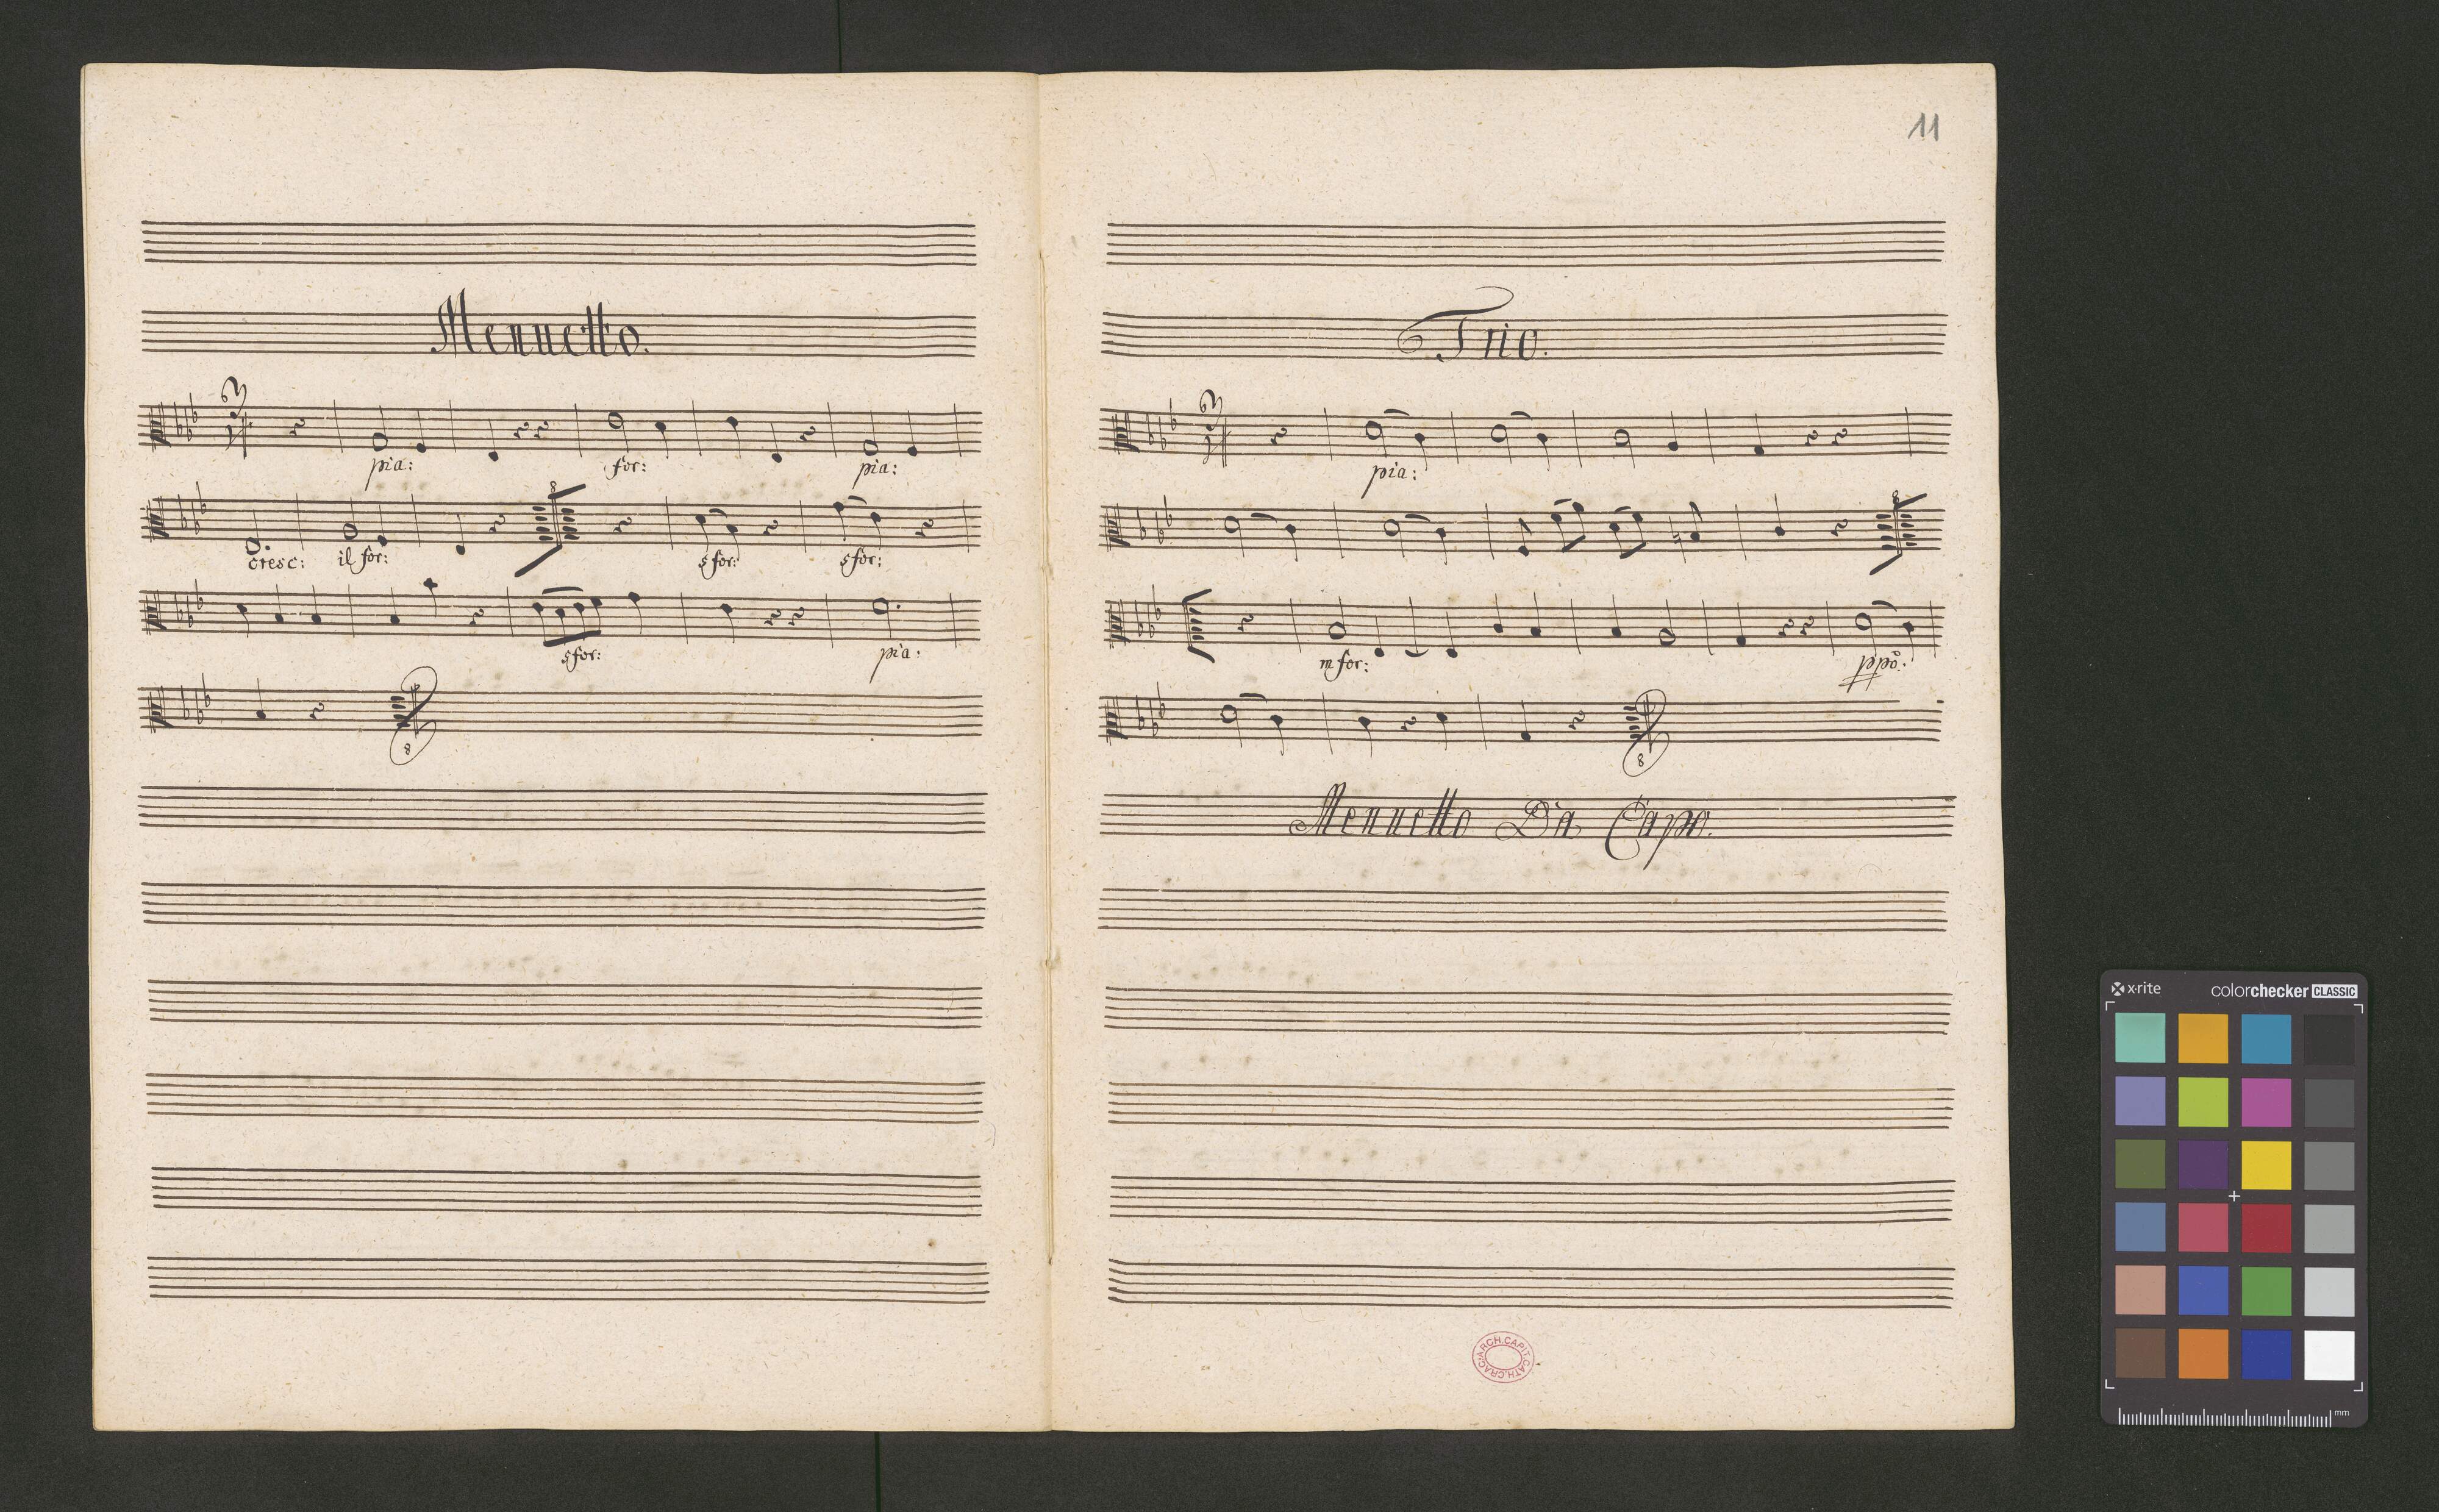 Mennetto.
pia: for: pia:
cresc: il for: sfor: sfor:
sfor: pia:
11
Trio.
pia:
m for: ppo:
Mennetto Da Capo.
ARCH.CAPIT.CATH.CRAC
x·rite colorchecker CLASSIC
mm